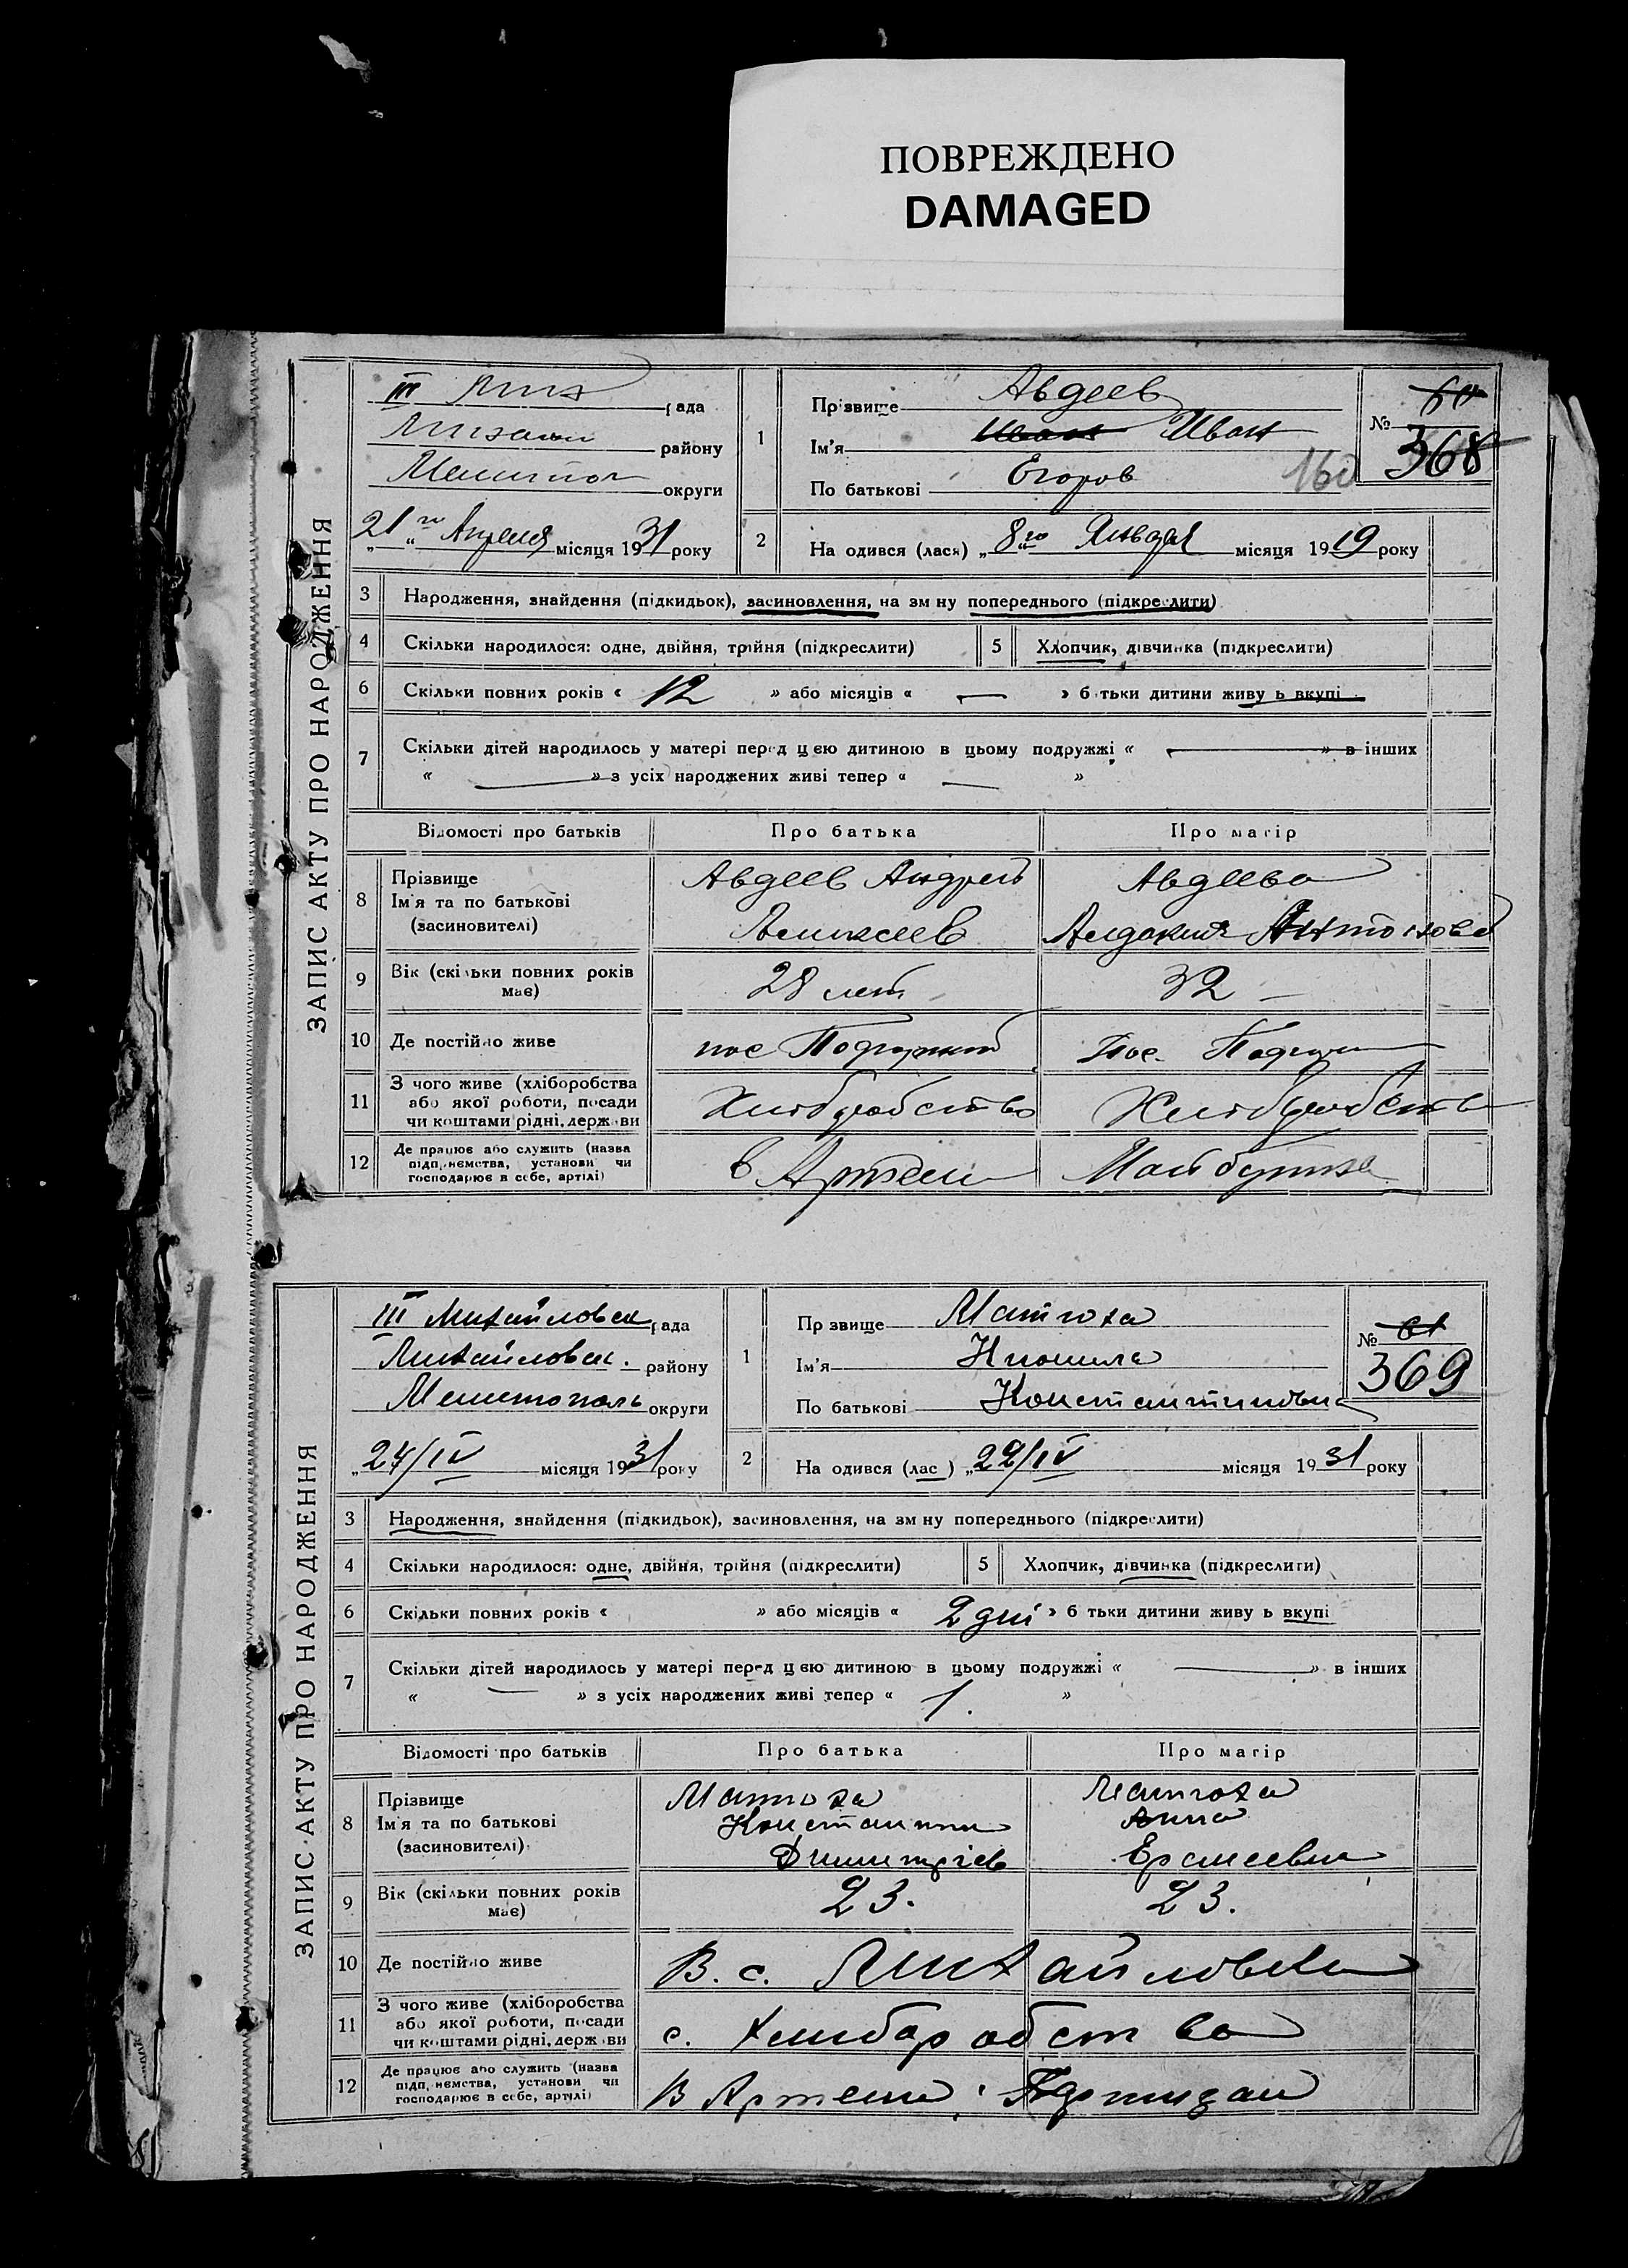 ПОВРЕЖДЕНО
DAMAGED
ЗАПИС АКТУ ПРО НАРОДЖЕННЯ
III Мих рада
району
Мелитоп округи
21го Апреля місяця 1931 року
1
Прізвище Авдеев
Ім'я Иван Иван
По батькові Егоров
160
№ 60
368
2 На одився (лася) „8го Января місяця 1919 року
3 Народження, знайдення (підкидьок), засиновлення, на зм ну попереднього (підкреслити)
4 Скільки народилося: одне, двійня, трійня (підкреслити) 5 Хлопчик, дівчинка (підкреслити)
6 Скільки повних років « 12 » або місяців « — » б тьки дитини живу ь вкупі
7 Скільки дітей народилось у матері перед цією дитиною в цьому подружжі « — » в інших
« — » з усіх народжених живі тепер « — »
Відомості про батьків Про батька Про матір
8 Прізвище Ім'я та по батькові (засновителі)
Авдеев Андрей Авдеева
Алексеев Антонова
9 Вік (скільки повних років має) 28 лет 32 —
10 Де постійно живе пос Пос.
11 З чого живе (хліборобства
або якої роботи, посади
чи коштами рідні, держ ви
Хлеборобство Хлеборобство
12 Де працює або служить (назва
підприємства, установи чи
господарює в себе, артілі)
в Артели
ЗАПИС АКТУ ПРО НАРОДЖЕННЯ
III Михайловск рада
Михайловск. району
Мелитополь округи
„24/IV місяця 1931 року
1
Пр звище Матюха
Ім'я
По батькові Константиновна
№ 61
369
2 На одився (лас ) „22/IV місяця 1931 року
3 Народження, знайдення (підкидьок), засиновлення, на зм ну попереднього (підкреслити)
4 Скільки народилося: одне, двійня, трійня (підкреслити) 5 Хлопчик, дівчинка (підкреслити)
6 Скільки повних років « » або місяців « 2 дні » б тьки дитини живу ь вкупі
7 Скільки дітей народилось у матері перед цією дитиною в цьому подружжі « — » в інших
« — » з усіх народжених живі тепер « 1. »
Відомості про батьків Про батька Про матір
8 Прізвище
Ім'я та по батькові
(засиновителі)
Матюха Матюха
Константин Анна
Димитріев
9 Вік (скільки повних років має) 23. 23.
10 Де постійно живе В. с. Михайловка
11 З чого живе (хліборобства
або якої роботи, посади
чи коштами рідні, держ ви
с. хлиборобство
12 Де працює або служить (назва
підприємства, установи чи
господарює в себе, артілі)
В Артели